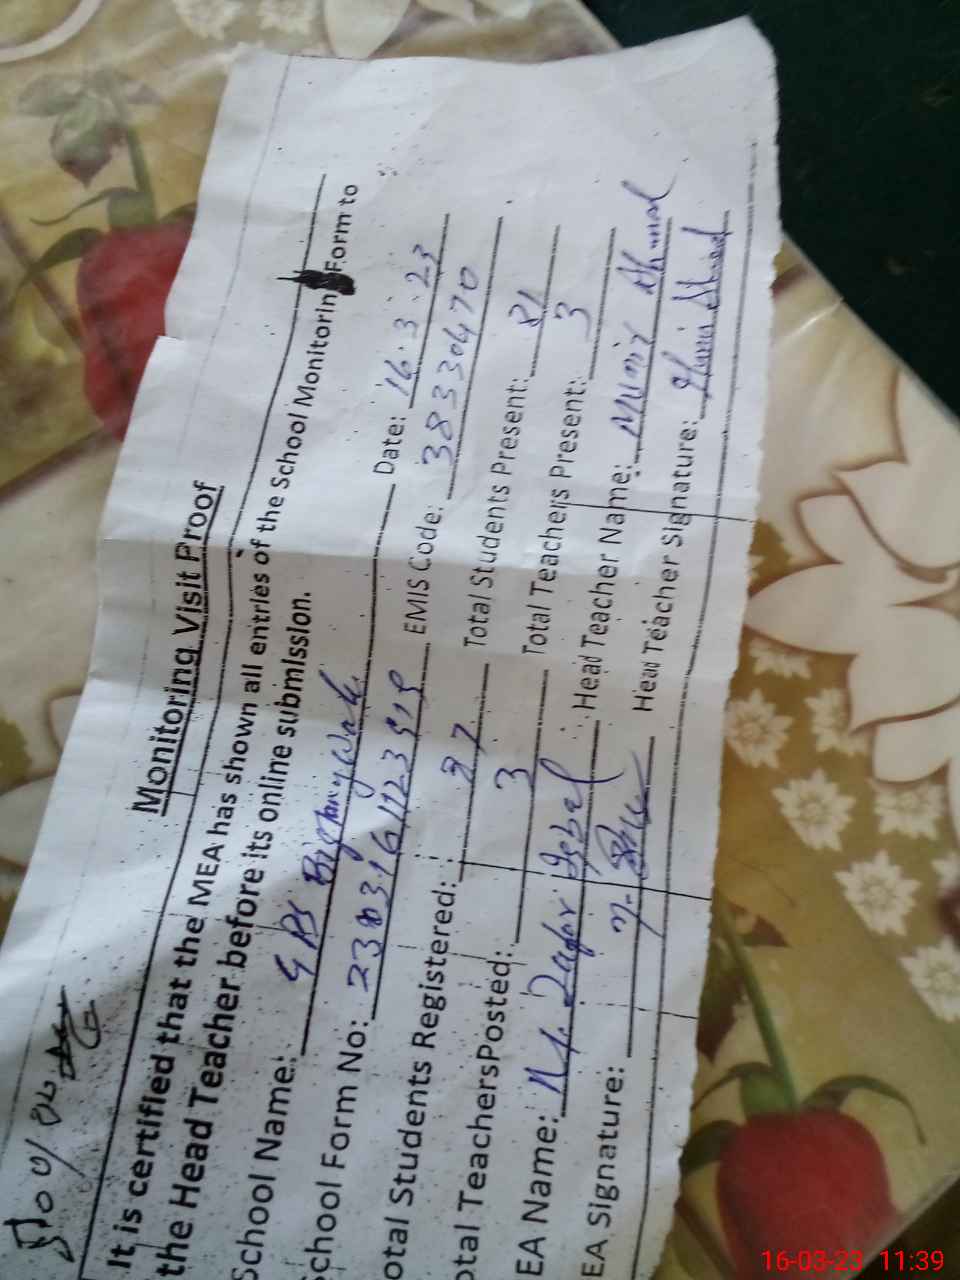 Monitoring Visit Proof
It is certified that the MEA has shown all entries of the School Monitorin Form to
the Head Teacher before its online submission.
School Name: GPS Date: 16.3.23
chool Form No: EMIS Code: 38330470
otal Students Registered: 97 Total Students Present: 81
otal TeachersPosted: 3 Total Teachers Present: 3
EA Name: M. Zafar Iqbal Head Teacher Name: Munir Ahmad
EA Signature: Head Teacher Signature:
16-03-23 11:39